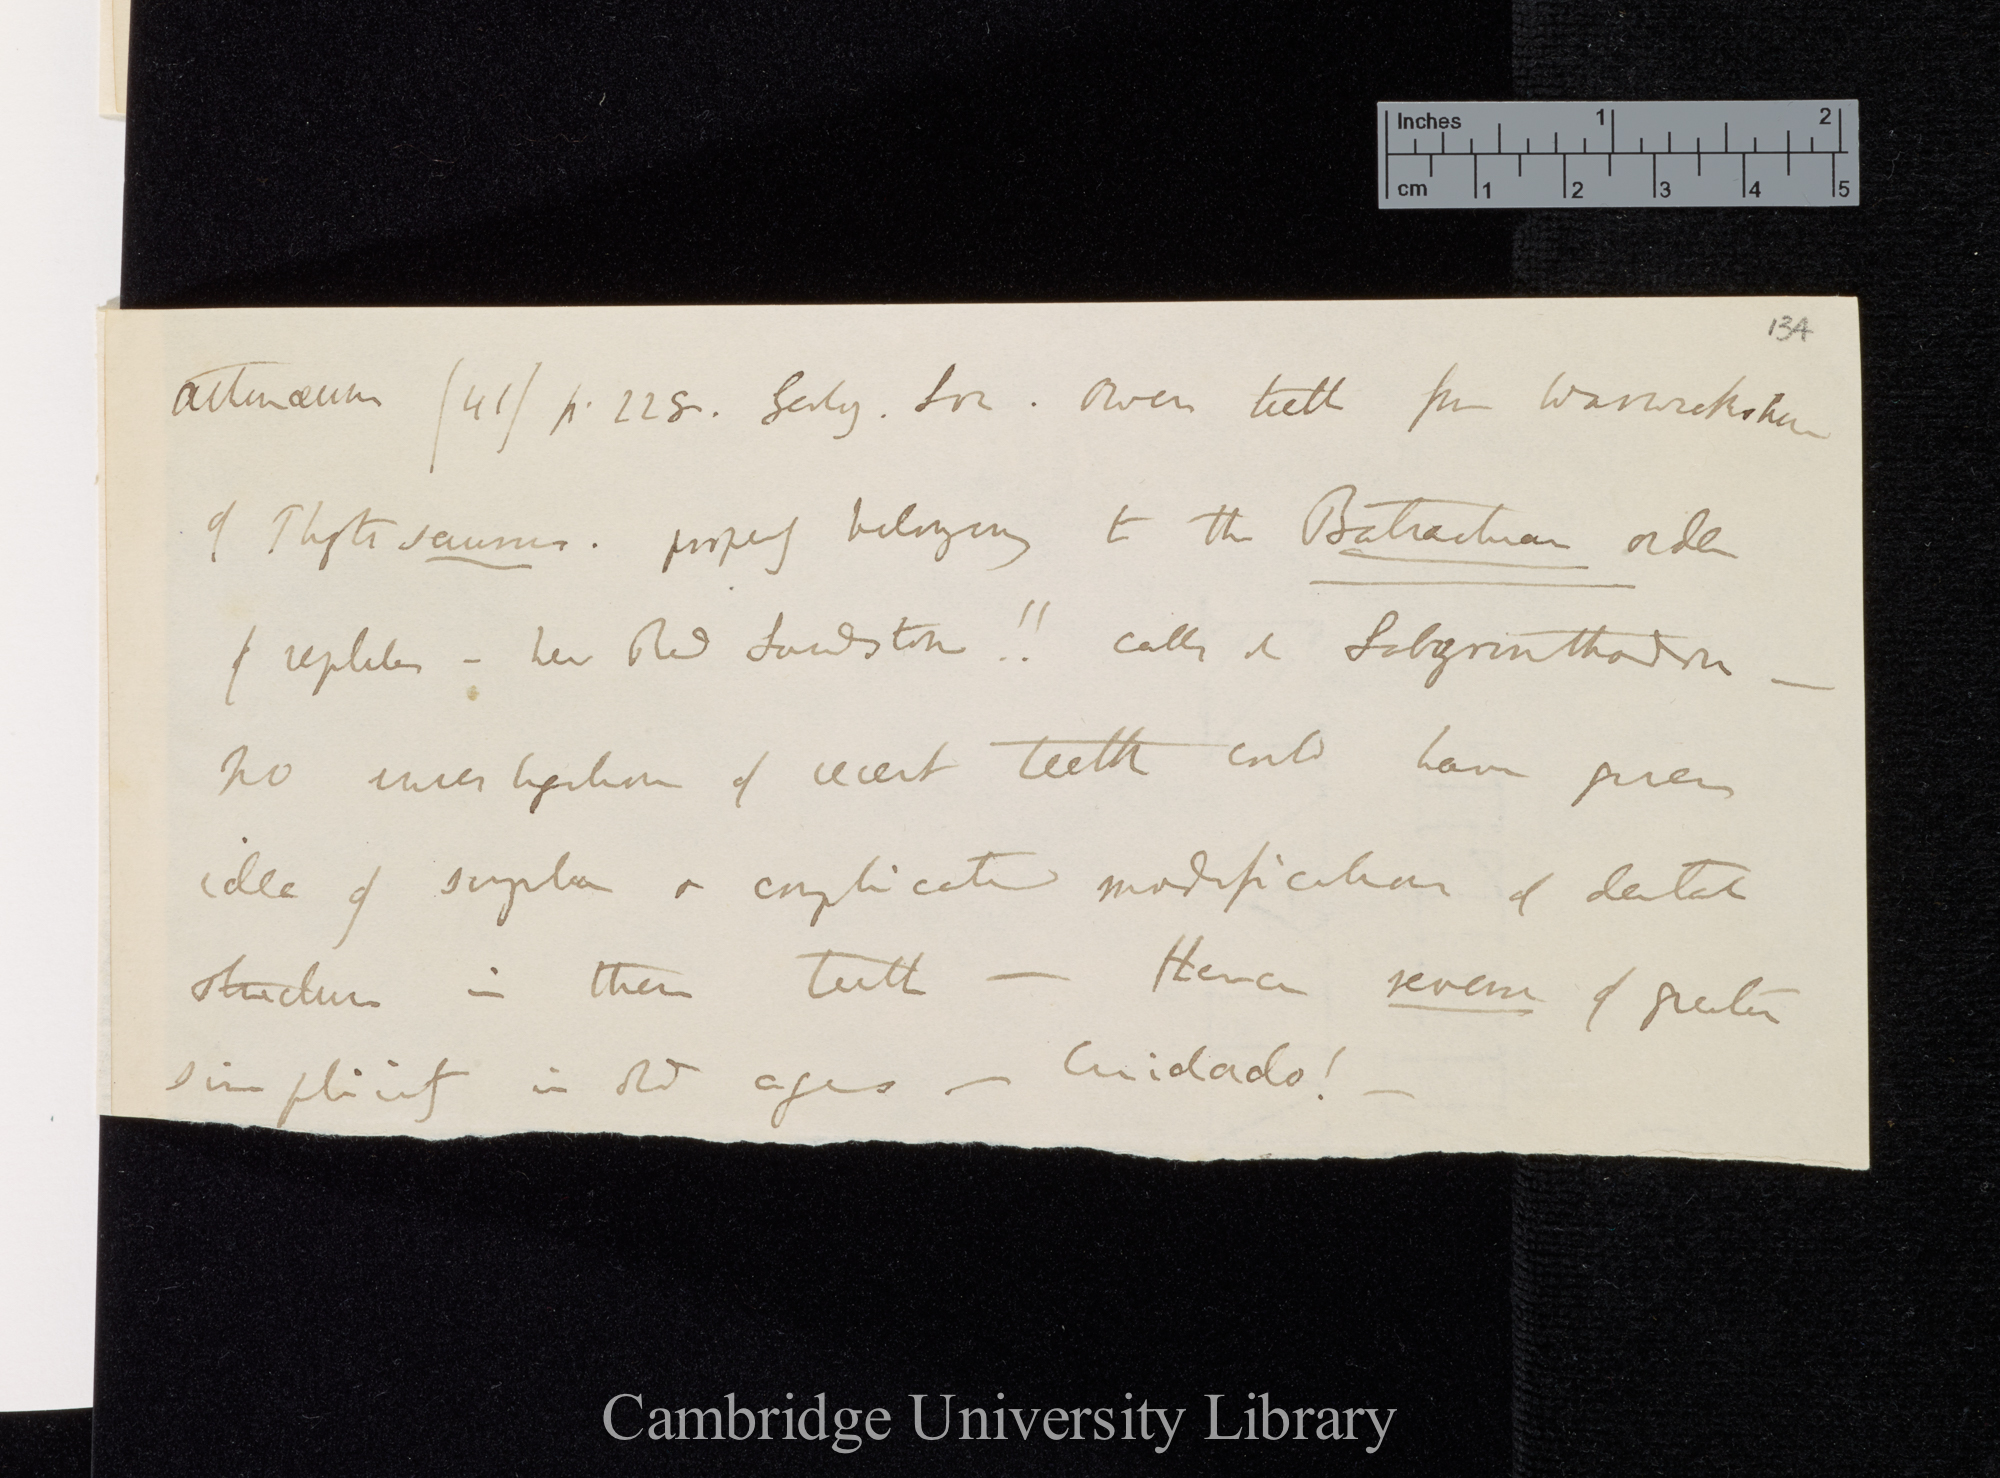 Inches 1 2
cm 1 2 3 4 5
134
Athenæum (41) p. 228. Geolog. Soc. Owen teeth from Warwickshire
of Phytosaurus. properly belonging to the Batrachian order
of reptiles – New Red Sandstone!! calls it Labyrinthodon —
no investigation of recent teeth could have given
idea of singular & complicated modification of dental
structure in these teeth — Hence reverse of greater
simplicity in old ages — Cuidado! —
Cambridge University Library